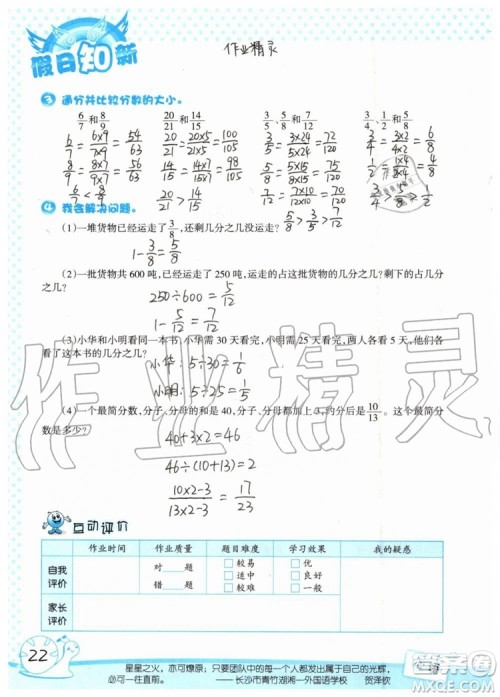 假日知新
作业精灵
3 通分并比较分数的大小。
6/7和8/9 20/21和14/15 3/5、5/8和7/12 3/4、1/2和5/8
6/7=6×9/7×9=54/63 20/21=20×5/21×5=100/105 3/5=3×24/5×24=72/120 3/4=3×2/4×2=6/8
8/9=8×7/9×7=56/63 14/15=14×7/15×7=98/105 5/8=5×15/8×15=75/120 1/2=1×4/2×4=4/8
6/7<8/9 20/21>14/15 7/12=7×10/12×10=70/120 3/4>5/8>1/2
5/8>3/5>7/12
4 我会解决问题。
(1)一堆货物已经运走了3/8,还剩几分之几没运?
1-3/8=5/8
(2)一批货物共600吨,已经运走了250吨,运走的占这批货物的几分之几?剩下的占几分
之几?
250÷600=5/12
1-5/12=7/12
(3)小华和小明看同一本书,小华需30天看完,小明需25天看完,两人各看5天,他们各
看了这本书的几分之几?
小华:5÷30=1/6
小明:5÷25=1/5
(4)一个最简分数,分子与分母的和是40,分子、分母都加上3,约分后是10/13。这个最简分
数是多少?
40+3×2=46
46÷(10+13)=2
10×2-3/13×2-3=17/23
互动评价
作业时间 作业质量 题目难度 学习效果 我的疑惑
自我评价 对 题 错 题 □较易 □适中 □较难 □优 □良好 □一般
家长评价
22
星星之火,亦可燎原;只要团队中的每一个人都发出属于自己的光辉,
必可一往直前。 ——长沙市青竹湖湘一外国语学校 贺泽钦
作业精灵
答案圈